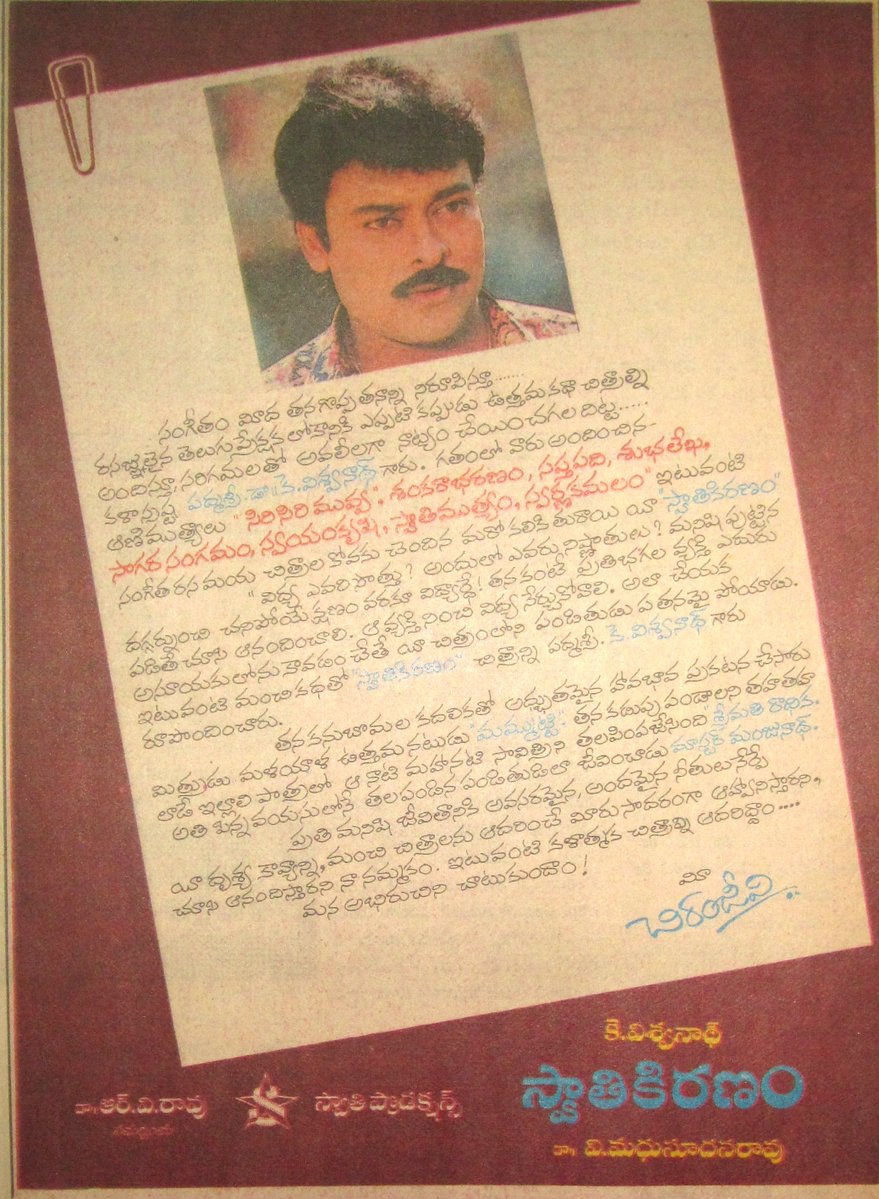 సంగీతం మీద తన గొప్పతనాన్ని నిరూపిస్తూ.......
రసజ్ఞులైన తెలుగు ప్రేక్షక లోకానికి ఎప్పటి కప్పుడు ఉత్తమ కథా చిత్రాల్ని
అందిస్తూ, సరిగమలతో అవలీలగా నాట్యం చేయించగల దిట్ట.....
కళా స్రష్ట పద్మశ్రీ. డా॥ కె. విశ్వనాథ్ గారు. గతంలో వారు అందించిన
ఆణిముత్యాలు "సిరిసిరి మువ్వ", శంకరాభరణం, సప్తపది, శుభలేఖ,
సాగర సంగమం, స్వయంకృషి, స్వాతిముత్యం, స్వర్ణకమలం" ఇటువంటి
సంగీత రసమయ చిత్రాల కోవకు చెందిన మరో కలికితురాయి యీ "స్వాతికిరణం"
"విద్య ఎవరి సొత్తు? అందులో ఎవరు నిష్ణాతులు? మనిషి పుట్టిన
దగ్గర్నుంచి చనిపోయే క్షణం వరకూ విద్యార్థే! తనకంటే ప్రతిభగల వ్యక్తి ఎదురు
పడితే చూసి ఆనందించాలి. ఆ వ్యక్తి నించి విద్య నేర్చుకోవాలి. అలా చేయక
అసూయకు లోను కావడం చేతే యీ చిత్రంలోని పండితుడు పతనమై పోయాడు.
ఇటువంటి మంచి కథతో "స్వాతికిరణం" చిత్రాన్ని పద్మశ్రీ. కె. విశ్వనాథ్ గారు
రూపొందించారు.
తన కనుబొమల కదలికతో అద్భుతమైన హావభావ ప్రకటన చేసారు
మిత్రుడు మళయాళ ఉత్తమ నటుడు "మమ్ముట్టి". తన కడుపు పండాలని తహతహ
లాడే ఇల్లాలి పాత్రలో ఆ నాటి మహానటి సావిత్రిని తలపింపజేసింది "శ్రీమతి రాధిక.
అతి చిన్న వయసులోనే తలపండిన పండితుడిలా జీవించాడు మాస్టర్ మంజునాథ్.
ప్రతి మనిషి జీవితానికి అవసరమైన, అందమైన నీతులు నేర్పే
యీ దృశ్య కావ్యాన్ని, మంచి చిత్రాలను ఆదరించే మీరు సాదరంగా ఆహ్వానిస్తారని,
చూసి ఆనందిస్తారని నా నమ్మకం. ఇటువంటి కళాత్మక చిత్రాన్ని ఆదరిద్దాం....
మన అభిరుచిని చాటుకుందాం!
మీ
చిరంజీవి
కె.విశ్వనాథ్
స్వాతికిరణం
డా॥ ఆర్.వి.రావు
సమర్పించు
స్వాతి ప్రొడక్షన్స్
వి.మధుసూదనరావు